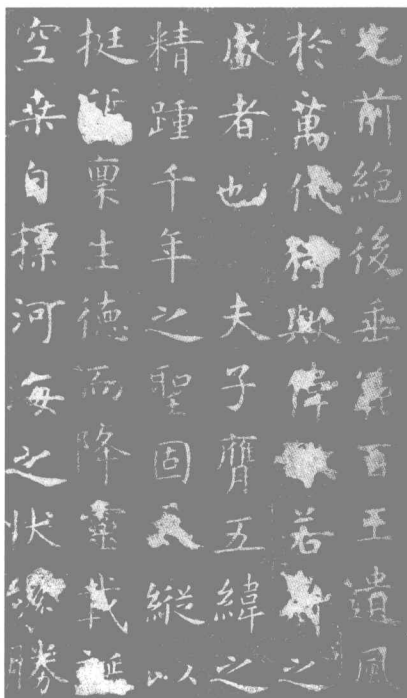 光前絕後垂範百王遺風
於萬代猗歟偉若之
盛者也 夫子膺五緯之
精踵千年之聖固天縱以
挺稟生德而降靈載誕
空桑自標河海之狀纔勝